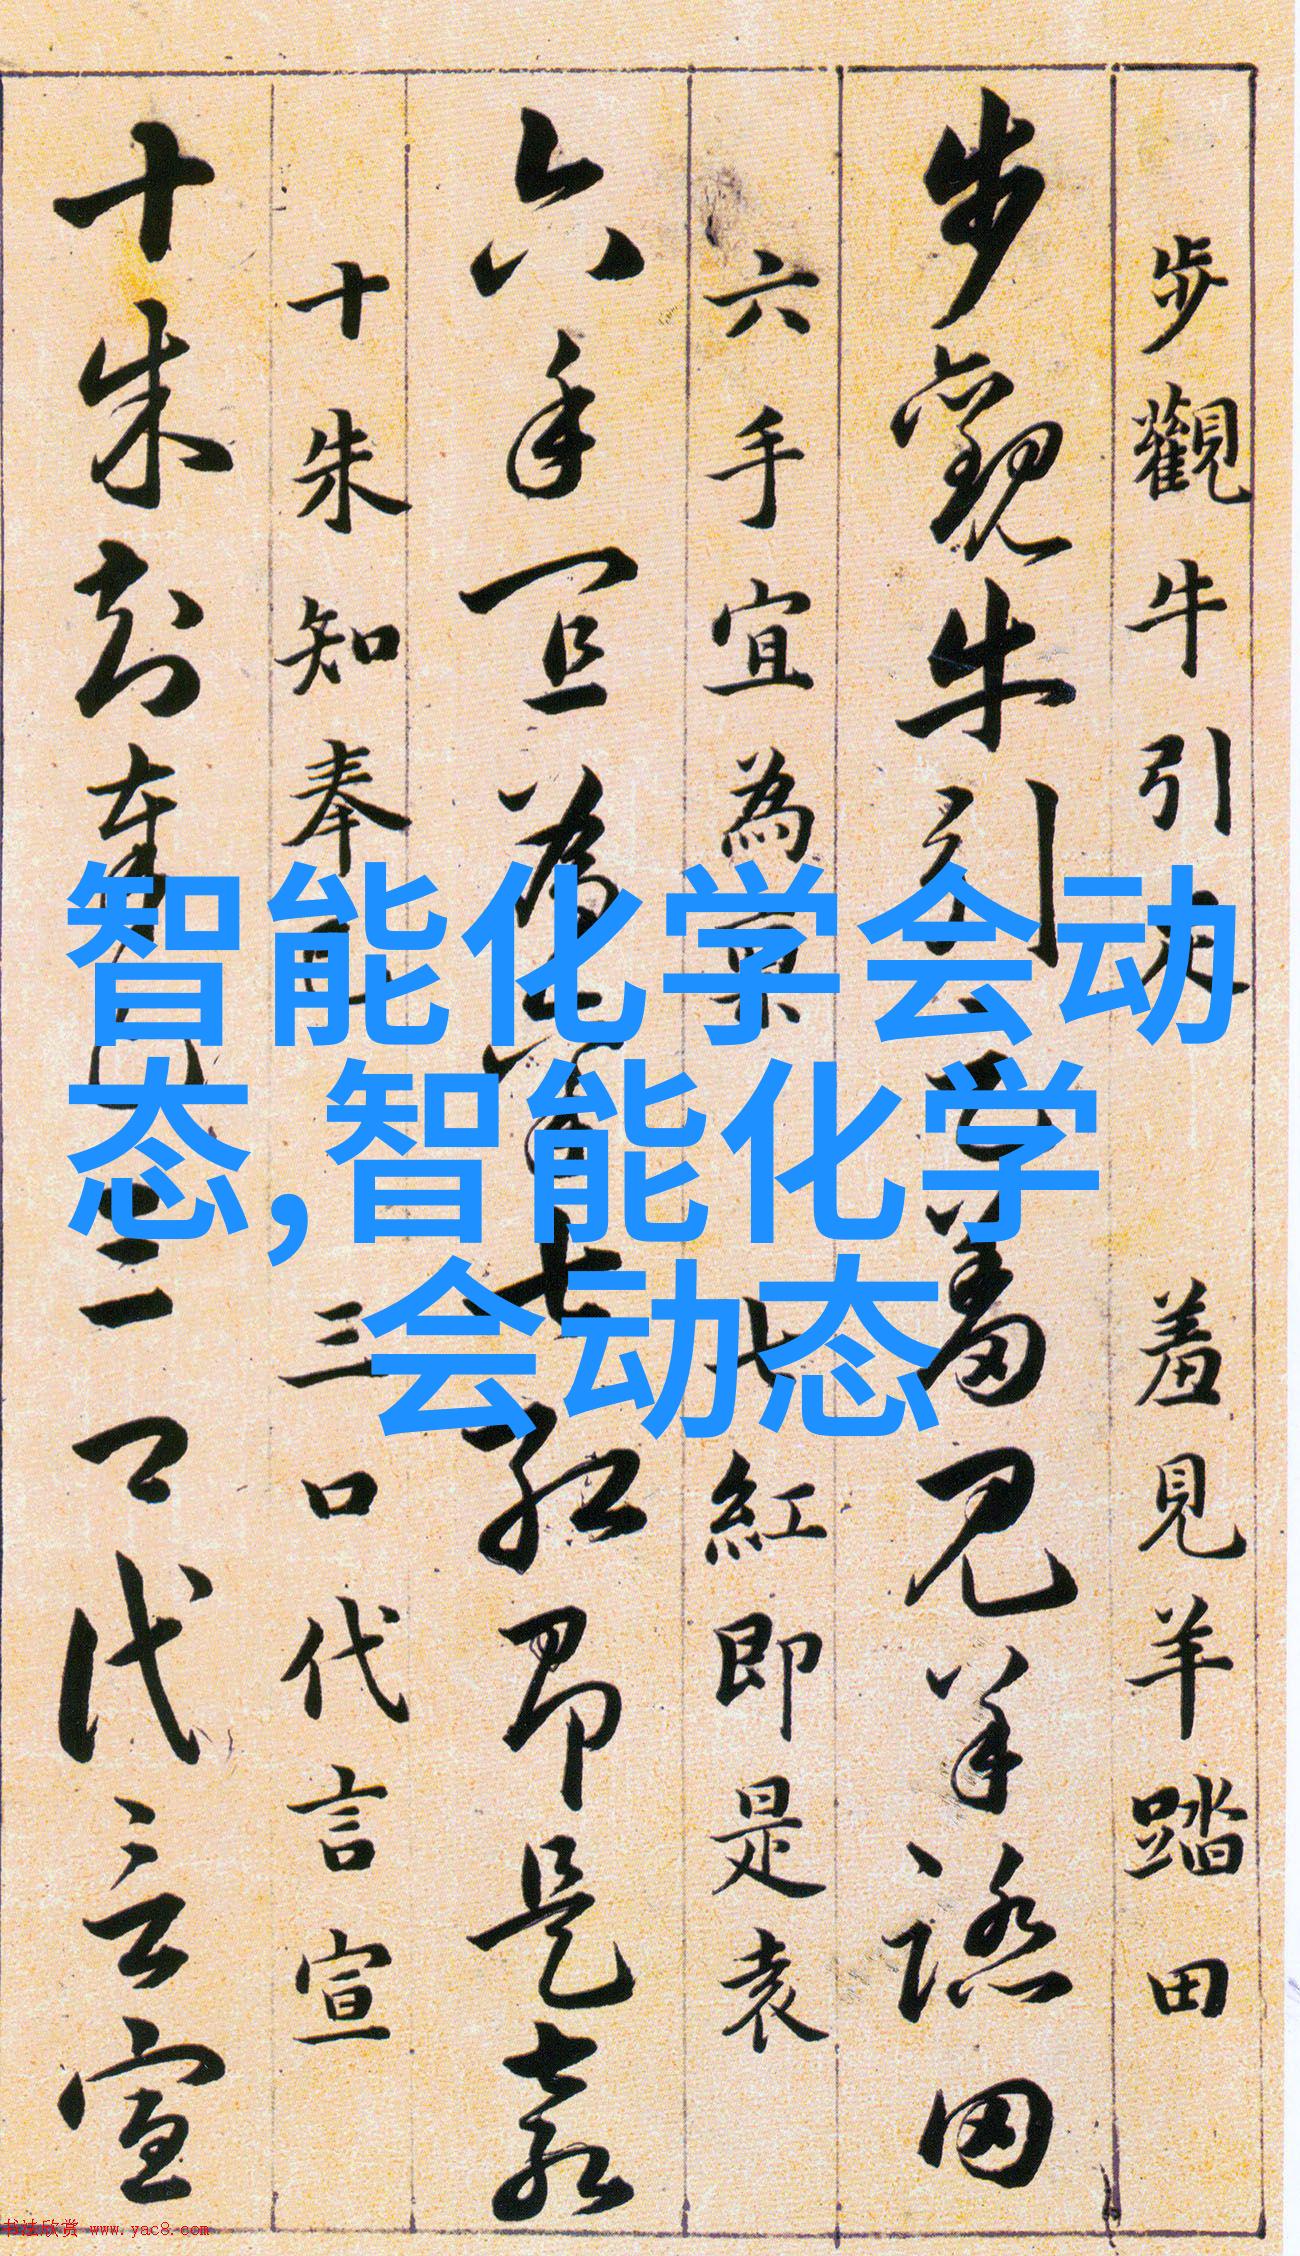 智能化学会动
态,智能化学
会动态
步觀牛引 羞見羊踏田
步觀牛引 羞見羊踏田
六手宜為 七紅即是袁
六手宜為 七紅即是袁
十朱知奉 三口代言宣
十朱知奉 三口代言宣
书法欣赏 www.yac8.com